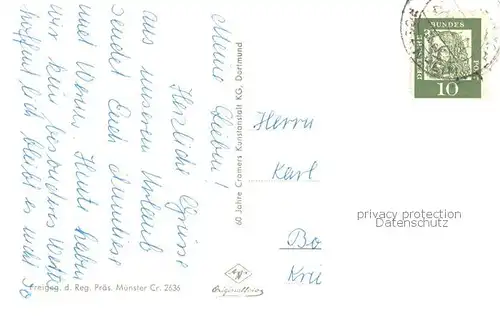 Meine Lieben!
Herzliche Grüsse
aus unserem Urlaub
sendet Euch Anneliese
und Werner. Heute haben
wir kein besonderes Wetter
hoffentlich bleibt es nicht so
60 Jahre Cramers Kunstanstalt KG, Dortmund
Freigeg. d. Reg. Präs. Münster Cr. 2636
Originalfoto
DEUTSCHE BUNDESPOST
10
Herrn
Karl
Bo
Kre
privacy protection
Datenschutz